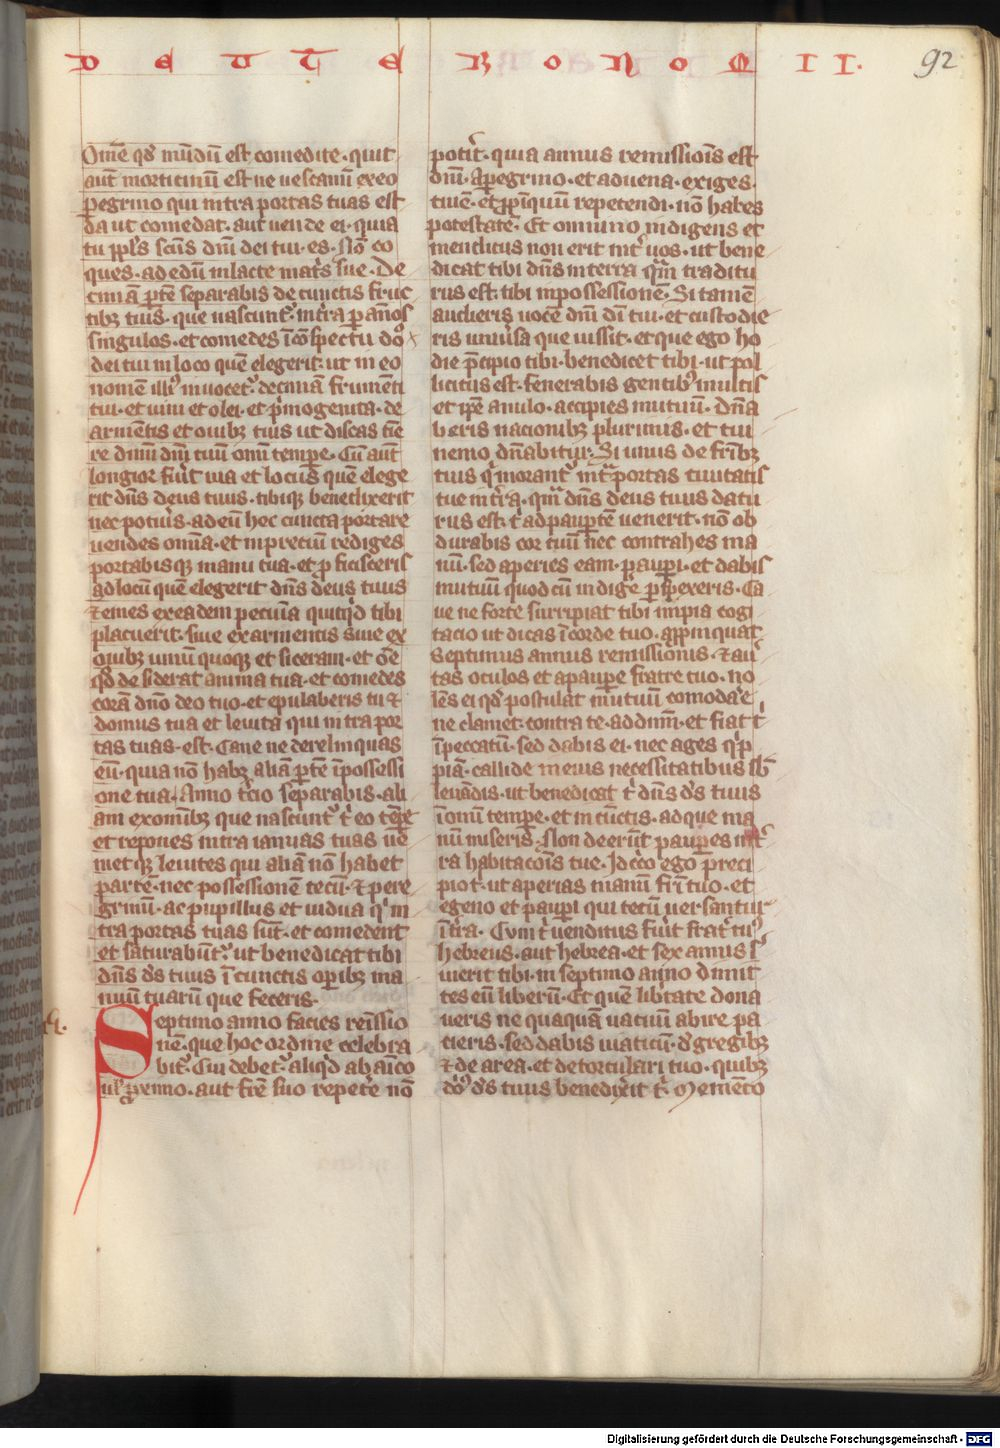 D E U T E R O N O M II.
92
Om̄e qd̕ mūdū est comedite · quit
aūt morticinū est ne uescamī ex eo
ꝑegrino qui intra portas tuas est
da ut comedat · aut uende ei · quia
tu ppl̕s scūs dn̄i dei tui es · Nō co
ques · ad edū in lacte matˢ sue · De
cimā ꝑtē separabis de cunctis fruc
tibꝫ tuis · que nascunt᷑ in tr̕ra ꝑ an̄os
singulos · et comedes ī cōspectu dn̄i
dei tui in loco quē elegerit · ut in eo
nomen illi᷒ inuocet᷑ · decimā frumenti
tui · et uini et olei · et p̕mogenita · de
armētis et ouibꝫ tuis ut discas tīe
re dnm̄ dm̄ tuū om̄i tempe · Cū aūt
longior fu̕it uia et locus quē elege
rit dn̄s deus tuus · tibiqꝫ benedixerit
nec potu̕is · ad eū hec cuncta portare
uendes om̄ia · et in preciū rediges
portabisqꝫ manu tua · et ꝓficisceris
ad locū quē elegerit dn̄s deus tuus
⁊ emes ex eadem pecunia quitq̕d tibi
placuerit · siue ex armentis siue ex
ouibꝫ uinū quoqꝫ et siceram · et om̄e
qd̕ desiderat anima tua · et comedes
corā dn̄o deo tuo · et epulaberis tu ⁊
domus tua et leuita qui intra por
tas tuas · est · Caue ne derelinquas
eū · quia nō habꝫ aliā ꝑtē ī possessi
one tua · Anno t̕cio separabis · ali
am ex om̄ibꝫ que nascunt᷑ t̕ eo tēpe
et repones intra ianuas tuas ue
nietqꝫ leuites qui aliā nō habet
partē · nec possessionē tecū · ⁊ pere
grinū · ac pupillus et uidua q̕ in
tra portas tuas sūt · et comedent
et saturabūt᷑ · ut benedicat tibi
dn̄s ds̄ tuus ī cunctis oꝑibꝫ ma
nuū tuarū que feceris ·
Septimo anno facies rem̄issio
nē · que hoc ordine celebra
bit᷑ · Cui debet᷑ aliq̕d ab amīco
ul̕ ꝓximo · aut fr̄e suo repet̕e nō
potit̕ · quia annus remissiōis est
dn̄i · A ꝑegrino · et aduena · exiges ·
ciuē · et ꝓpinquū repetendi · nō habes
potestatē · Et omnino indigens et
mendicus non erit int̕ uos · ut bene
dicat tibi dn̄s in terra qm̄ traditu
rus est · tibi in possessionē · Si tamē
audieris uocē dn̄i di̅ tui · et custodie
ris uniu̕sa que iussit · et que ego ho
die p̄cipio tibi · benedicet tibi · ut pol
licitus est · fenerabis gentibꝫ multis
et ip̄e a nullo · accipies mutuū · dn̄a
beris nacionibꝫ plurimis · et tui
nemo dn̄abitur · Si unus de frībꝫ
tuis q̕ morant᷑ int̕ portas ciuitatis
tue in tr̕ra · qm̄ dn̄s deus tuus datu
rus est · t̕ ad pauꝑtē uenerit · nō ob
durabis cor tuū nec contrahes ma
nū · sed aperies eam · pauꝑi · et dabis
mutuū quod eū indige̕ ꝑspexeris · Ca
ue ne forte surripiat tibi impia cogi
tacio ut dicas ī corde tuo · apꝓpinquat
Septimus annus remissionis · ⁊ au̕
tas oculos et a pauꝑe fratre tuo · no
lēs ei qd̕ postulat mutuū comoda̕e
ne clamet · contra te · ad dnm̄ · et fiat t̕
ī peccatū · sed dabis ei · nec ages q̕p
piā · callide in eius necessitatibus sb̄
leuādis · ut benedicat t̕ dn̄s ds̄ tuus
ī om̄i tempe · et in cūctis · ad que ma
nū miseris · Non deerūt pauꝑes int̕
ra habitacōis tue · Idcco ego p̄reci
pio t̕ · ut aperias manū fr̄i tuo · et
egeno et pauꝑi qui tecū uersantur
ī tr̕ra · Cum t̕ uenditus fu̕it frat̕ tu᷒
hebreus · aut hebrea · et sex annis s̕
uierit tibi · in septimo anno dimit
tes eū liberū · Et quē lib̕tate dona
ueris ne quaquā uacuū abire pa
cieris · sed dabis uiaticū · d̕ gregibꝫ
⁊ de area · et de torculari tuo · quibꝫ
dn̄s ds̄ tuus benedix̕it t̕ · Memēto